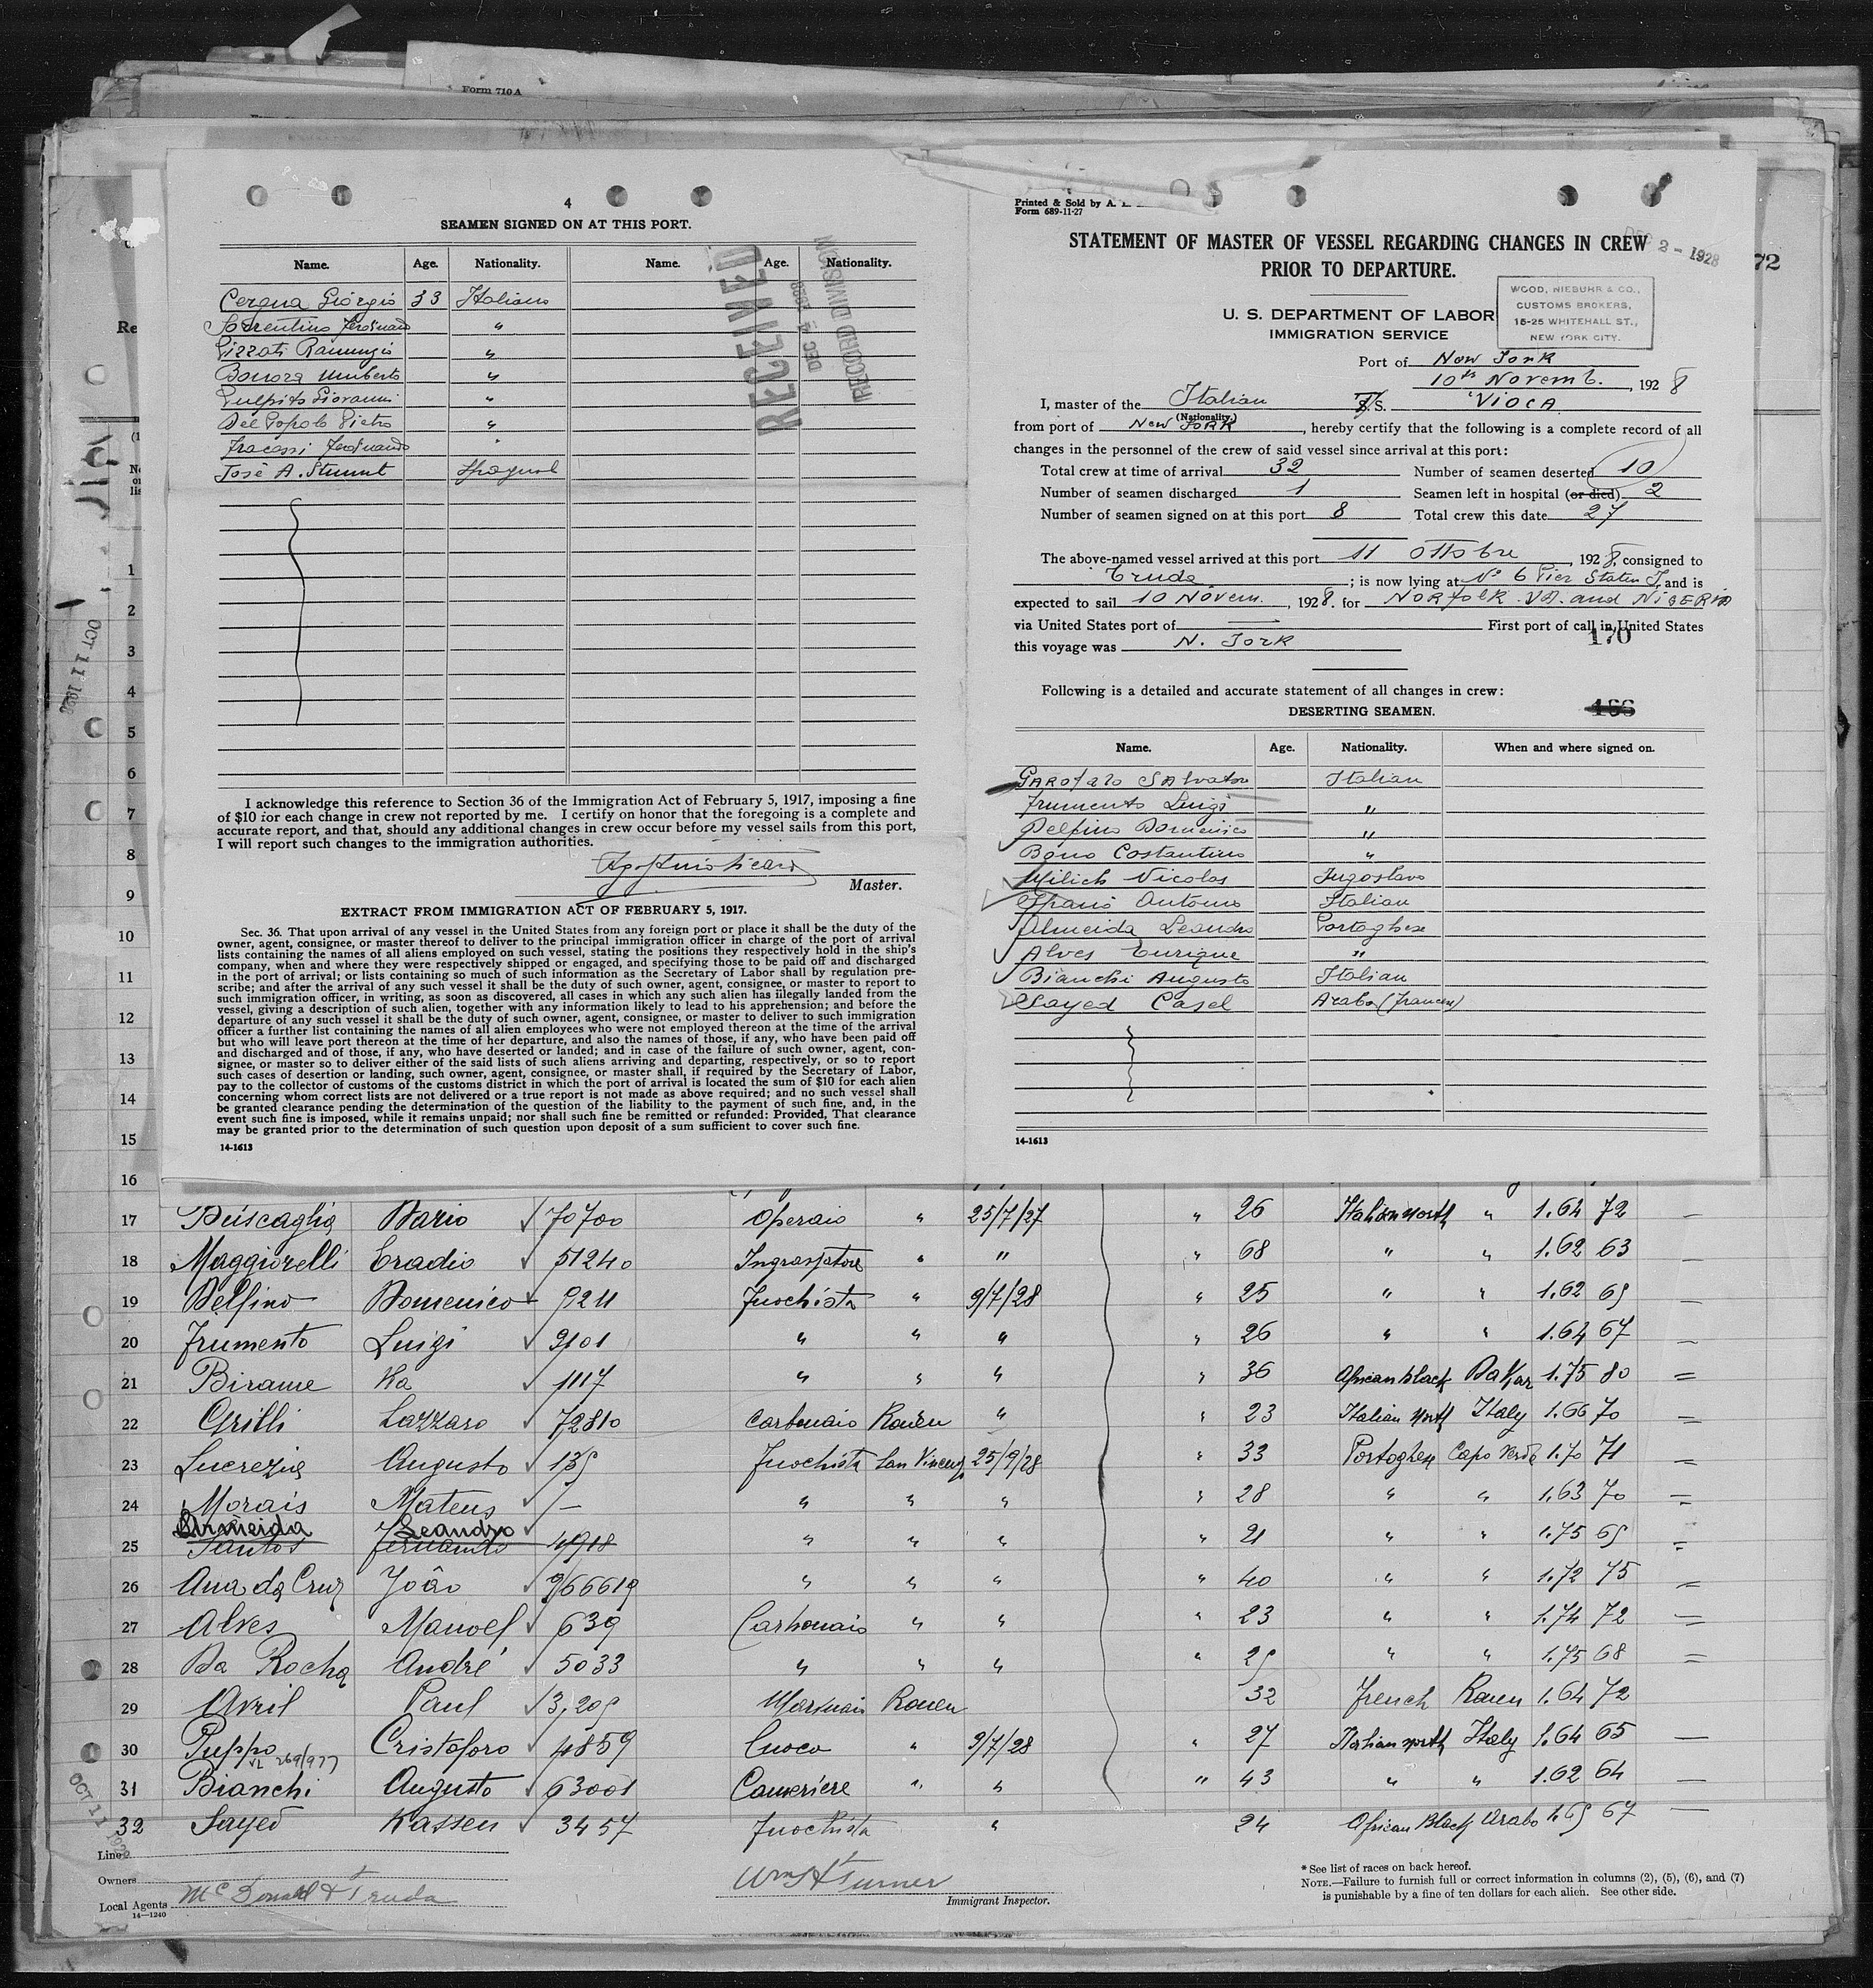 Form 710A
4
SEAMEN SIGNED ON AT THIS PORT.
Name. Age. Nationality. Name. Age. Nationality.
Cerqua Giorgio 33 Italiano
Sorrentino Ferdinando "
Ramunzio "
Bonora Umberto "
Vulpito Giovanni "
Del Popolo Pietro "
Fracassi Ferdinando "
José A. Spagnol
RECEIVED
DEC 1928
RECORD DIVISION
I acknowledge this reference to Section 36 of the Immigration Act of February 5, 1917, imposing a fine
of $10 for each change in crew not reported by me. I certify on honor that the foregoing is a complete and
accurate report, and that, should any additional changes in crew occur before my vessel sails from this port,
I will report such changes to the immigration authorities.
Master.
EXTRACT FROM IMMIGRATION ACT OF FEBRUARY 5, 1917.
Sec. 36. That upon arrival of any vessel in the United States from any foreign port or place it shall be the duty of the
owner, agent, consignee, or master thereof to deliver to the principal immigration officer in charge of the port of arrival
lists containing the names of all aliens employed on such vessel, stating the positions they respectively hold in the ship's
company, when and where they were respectively shipped or engaged, and specifying those to be paid off and discharged
in the port of arrival; or lists containing so much of such information as the Secretary of Labor shall by regulation pre-
scribe; and after the arrival of any such vessel it shall be the duty of such owner, agent, consignee, or master to report to
such immigration officer, in writing, as soon as discovered, all cases in which any such alien has illegally landed from the
vessel, giving a description of such alien, together with any information likely to lead to his apprehension; and before the
departure of any such vessel it shall be the duty of such owner, agent, consignee, or master to deliver to such immigration
officer a further list containing the names of all alien employees who were not employed thereon at the time of the arrival
but who will leave port thereon at the time of her departure, and also the names of those, if any, who have been paid off
and discharged and of those, if any, who have deserted or landed; and in case of the failure of such owner, agent, con-
signee, or master so to deliver either of the said lists of such aliens arriving and departing, respectively, or so to report
such cases of desertion or landing, such owner, agent, consignee, or master shall, if required by the Secretary of Labor,
pay to the collector of customs of the customs district in which the port of arrival is located the sum of $10 for each alien
concerning whom correct lists are not delivered or a true report is not made as above required; and no such vessel shall
be granted clearance pending the determination of the question of the liability to the payment of such fine, and, in the
event such fine is imposed, while it remains unpaid; nor shall such fine be remitted or refunded: Provided, That clearance
may be granted prior to the determination of such question upon deposit of a sum sufficient to cover such fine.
14-1613
Printed & Sold by A.
Form 689-11-27
STATEMENT OF MASTER OF VESSEL REGARDING CHANGES IN CREW
PRIOR TO DEPARTURE.
DEC 2 - 1928
72
U. S. DEPARTMENT OF LABOR
IMMIGRATION SERVICE
WOOD, NIEBUHR & CO.,
CUSTOMS BROKERS,
15-25 WHITEHALL ST.,
NEW YORK CITY.
Port of New York
10th Novemb. , 1928
I, master of the Italian S.S. "VIOCA
(Nationality.)
from port of New York , hereby certify that the following is a complete record of all
changes in the personnel of the crew of said vessel since arrival at this port:
Total crew at time of arrival 32 Number of seamen deserted 10
Number of seamen discharged 1 Seamen left in hospital (or died) 2
Number of seamen signed on at this port 8 Total crew this date 27
The above-named vessel arrived at this port 11 Ottobre , 1928, consigned to
Truda ; is now lying at No 6 Pier Staten I, and is
expected to sail 10 Novem. , 1928. for Norfolk Va. and NIGERIA
via United States port of — First port of call in United States
this voyage was N. York
170
Following is a detailed and accurate statement of all changes in crew:
DESERTING SEAMEN.
156
Name. Age. Nationality. When and where signed on.
Garofalo Salvatore Italian
Frumento Luigi "
Delfino Domenico "
Bono Costantino "
Milich Nicolas Jugoslavo
Spanò Antonio Italian
Almeida Leandro Portoghese
Alves Enrique "
Bianchi Augusto Italian
Sayed Casel Arabo (francese)
14-1613
OCT 11 1928
1
2
3
4
5
6
7
8
9
10
11
12
13
14
15
16
17 Buscaglia Dario 70700 Operaio " 25/7/27 " 26 Italian north " 1.64 72 —
18 Maggiorelli Eradio 51240 Ingrassatore " " " 68 " " 1.62 63 —
19 Delfino Domenico 9211 Fuochista " 9/7/28 " 25 " " 1.62 65 —
20 Frumento Luigi 9101 " " " " 26 " " 1.64 67 —
21 Birame Ka 1117 " " " " 36 African black Dakar 1.75 80 =
22 Grilli Lazzaro 72810 Carbonaio Rouen " " 23 Italian North Italy 1.66 70 =
23 Lucrezia Augusto 135 Fuochista San Vincenzo 25/9/28 " 33 Portoghese Capo Verde 1.70 71 =
24 Morais Mateus — " " " " 28 " " 1.63 70 =
Almeida Leandro
25 Santos Fernando 4918 " " " " 21 " " 1.75 65 =
26 Ana da Cruz João 966619 " " " " 40 " " 1.72 75 =
27 Alves Manoel 639 Carbonaio " " " 23 " " 1.74 72 =
28 Da Rocha André 5033 " " " " 25 " " 1.75 68 =
29 Avril Paul 3,205 Rouen 32 French Rouen 1.64 72
30 Puppo Cristoforo 4859 Cuoco " 9/7/28 " 27 Italian north Italy 1.64 65 —
269/977
31 Bianchi Augusto 63001 Cameriere " " " 43 " " 1.62 64 —
32 Sayed Kassen 3457 Fuochista " 24 African Black Arabo 1.65 67 —
OCT 11 1928
Line
Owners
Local Agents McDonald & Truda
14—1240
Wm H Turner
Immigrant Inspector.
* See list of races on back hereof.
NOTE.—Failure to furnish full or correct information in columns (2), (5), (6), and (7)
is punishable by a fine of ten dollars for each alien. See other side.